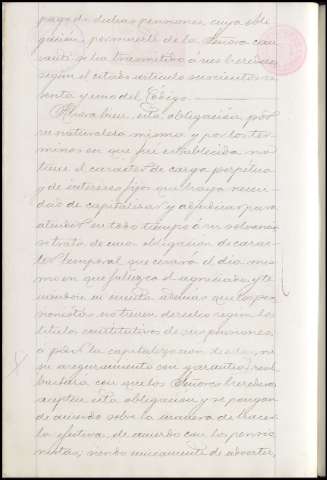 pago de dichas pensiones, cuya obli
gación, por muerte de la Señora cau
sante se ha trasmitido á sus herederos
según el citado artículo seiscientos se
senta y uno del Código.
Ahora bien, esta obligación, por
su naturaleza misma y por los tér
minos en que fué establecida no
tiene el carácter de carga perpetua
y de intereses fijos que haya necesi
dad de capitalizar y adjudicar para
atender en todo tiempo á su solvencia
se trata de una obligación de carac
ter temporal que cesará el día mis
mo en que fallezca el agraciado, y te
niendo en cuenta además que los pen
sionistas no tienen derecho según los
títulos constitutivos de sus pensiones,
á pedir la capitalización de ellas, ni
su aseguramiento con garantía real
bastaría con que los Señores herederos
acepten esta obligación y se pongan
de acuerdo sobre la manera de hacer
la efectiva, de acuerdo con los pensio
nistas, siendo únicamente de advertir,